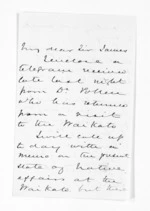 My dear Sir James
Enclose a
telegram received
late last night
from Dr. Pollen
who has returned
from a visit
to the Waikato
I will call up
to day with a
memo on the present
state of native
affairs in the
Waikato but this